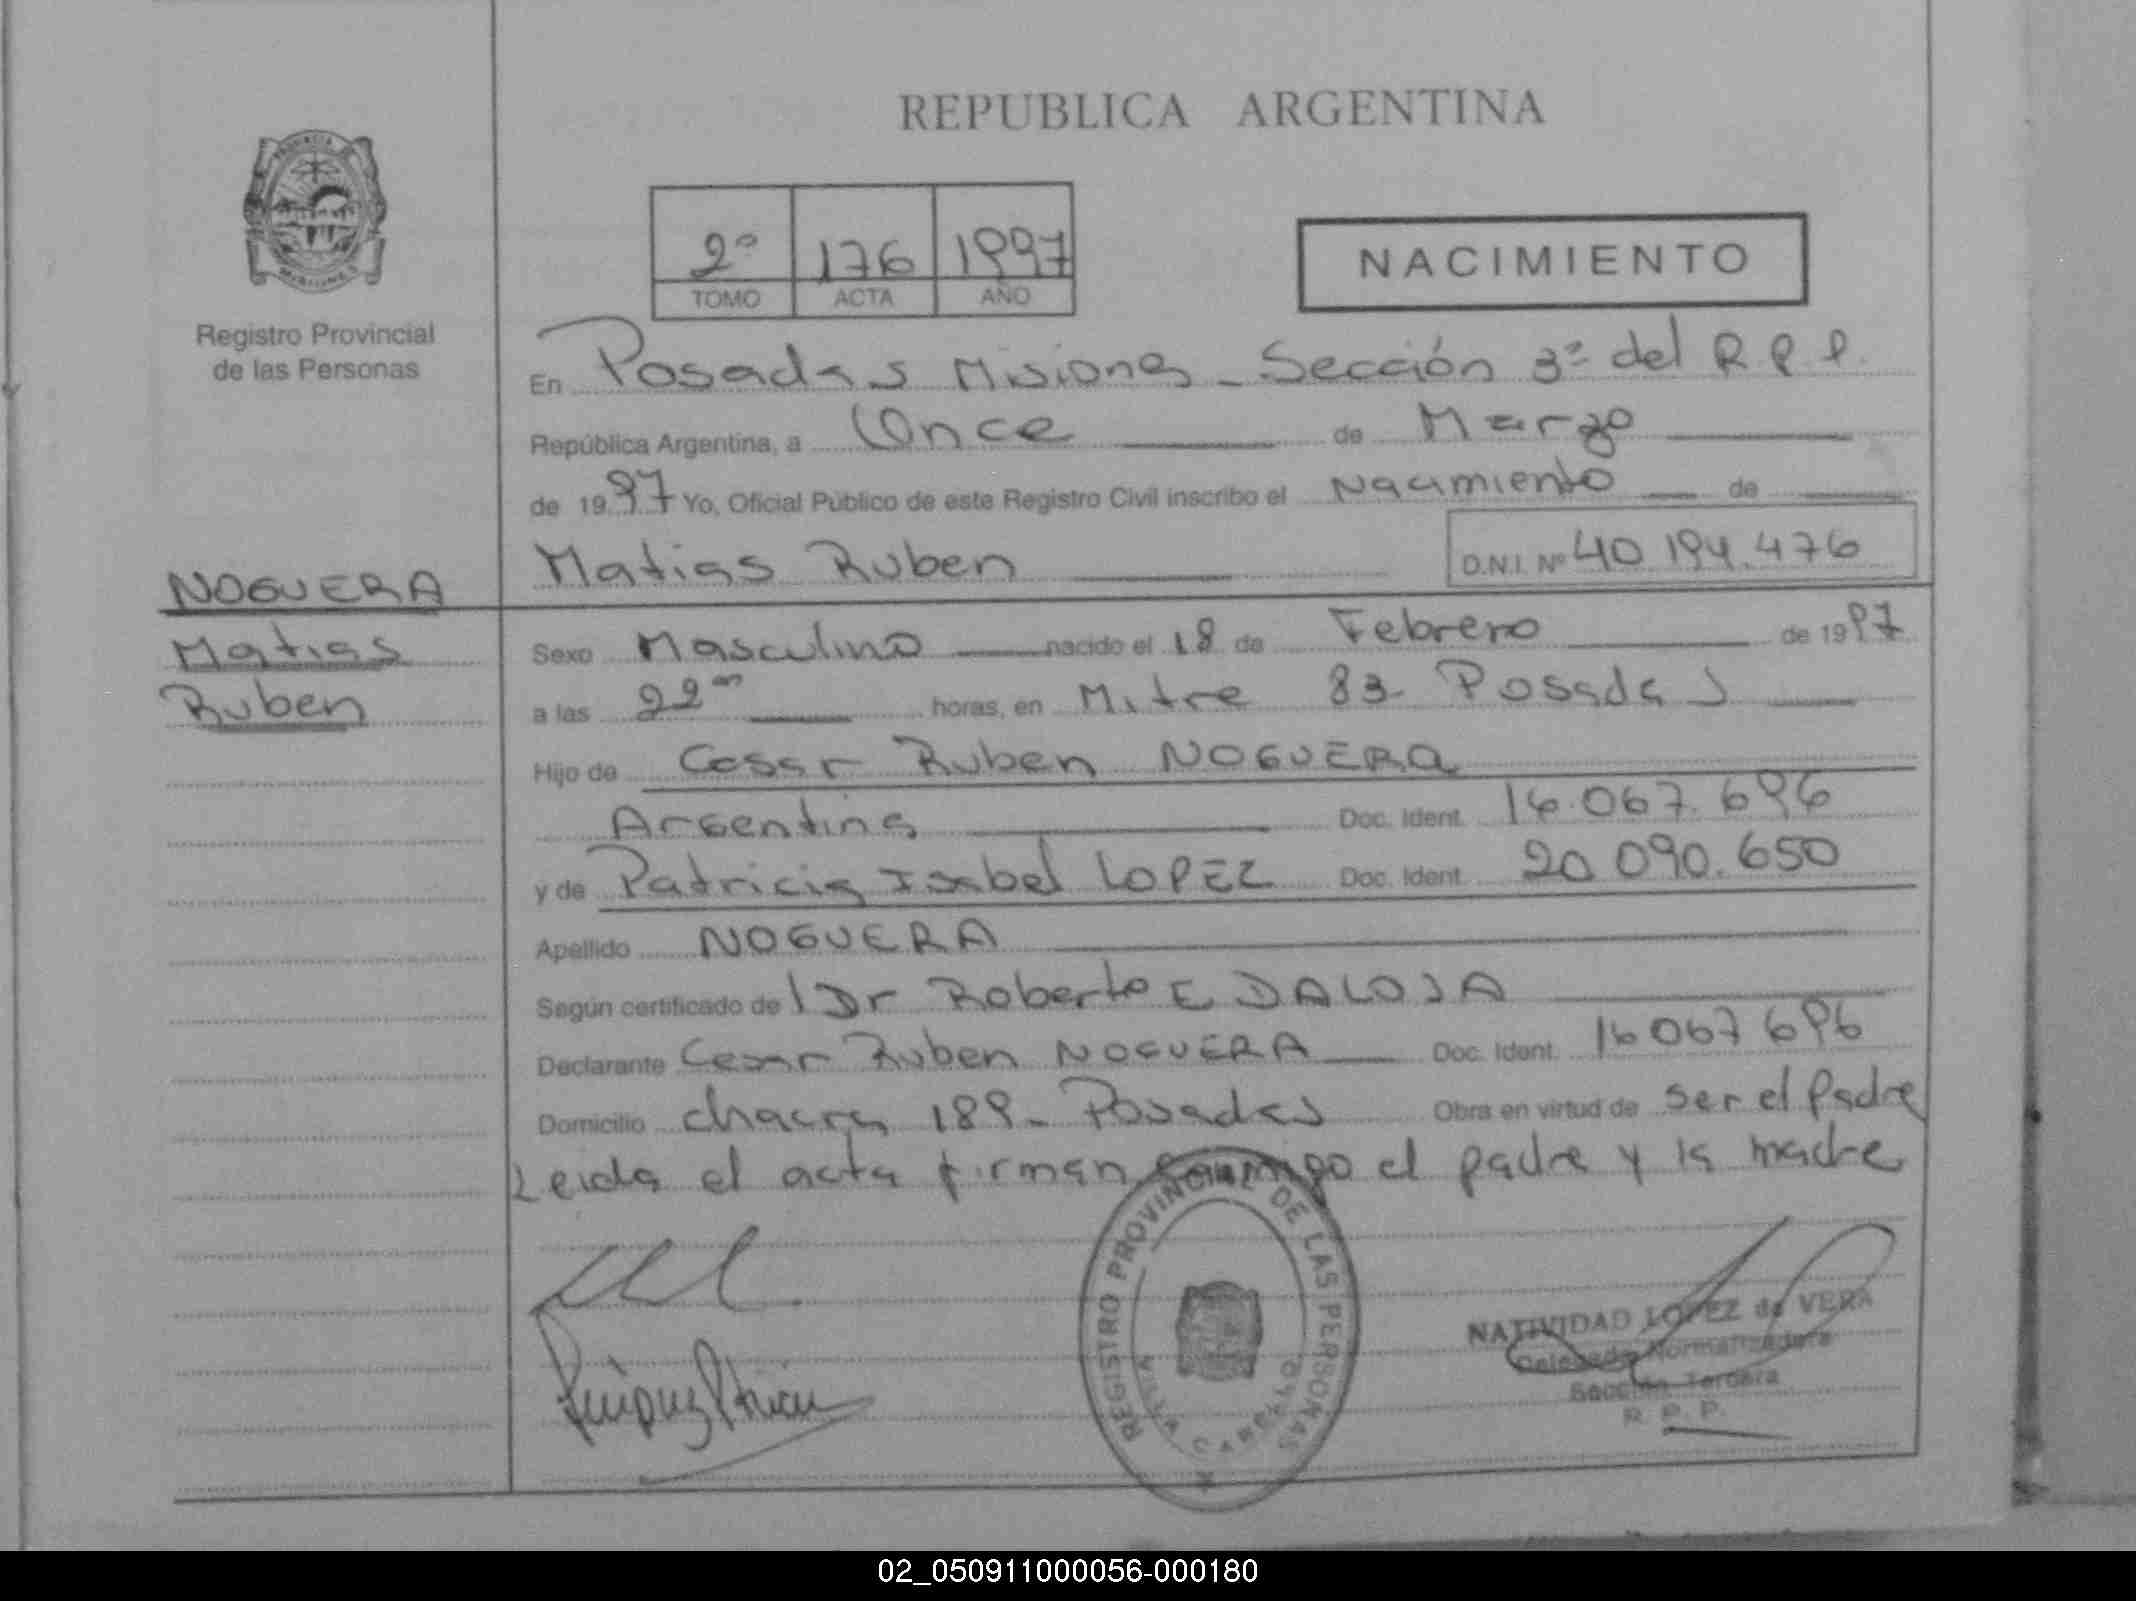 REPUBLICA ARGENTINA
PROVINCIA DE
MISIONES
Registro Provincial
de las Personas
2º 176 1997
TOMO ACTA AÑO
NACIMIENTO
En Posadas Misiones - Sección 3ª del R P P.
República Argentina, a Once de Marzo
de 1997 Yo, Oficial Público de este Registro Civil inscribo el Nacimiento de
Matias Ruben D.N.I. Nº 40 194.476
NOGUERA
Matias
Ruben
Sexo Masculino nacido el 18 de Febrero de 1997
a las 22 horas, en Mitre 83 - Posadas
Hijo de Cesar Ruben NOGUERA
Argentina Doc. Ident. 16.067.696
y de Patricia Isabel LOPEZ Doc. Ident. 20 090.650
Apellido NOGUERA
Según certificado de Dr Roberto E DALOJA
Declarante Cesar Ruben NOGUERA Doc. Ident. 16 067 696
Domicilio chacra 189 - Posadas Obra en virtud de ser el Padre
Leida el acta firman conmigo el padre y la madre
REGISTRO PROVINCIAL DE LAS PERSONAS
NATIVIDAD LOPEZ de VERA
Delegada Normalizadora
Sección Tercera
R. P. P.
02_050911000056-000180